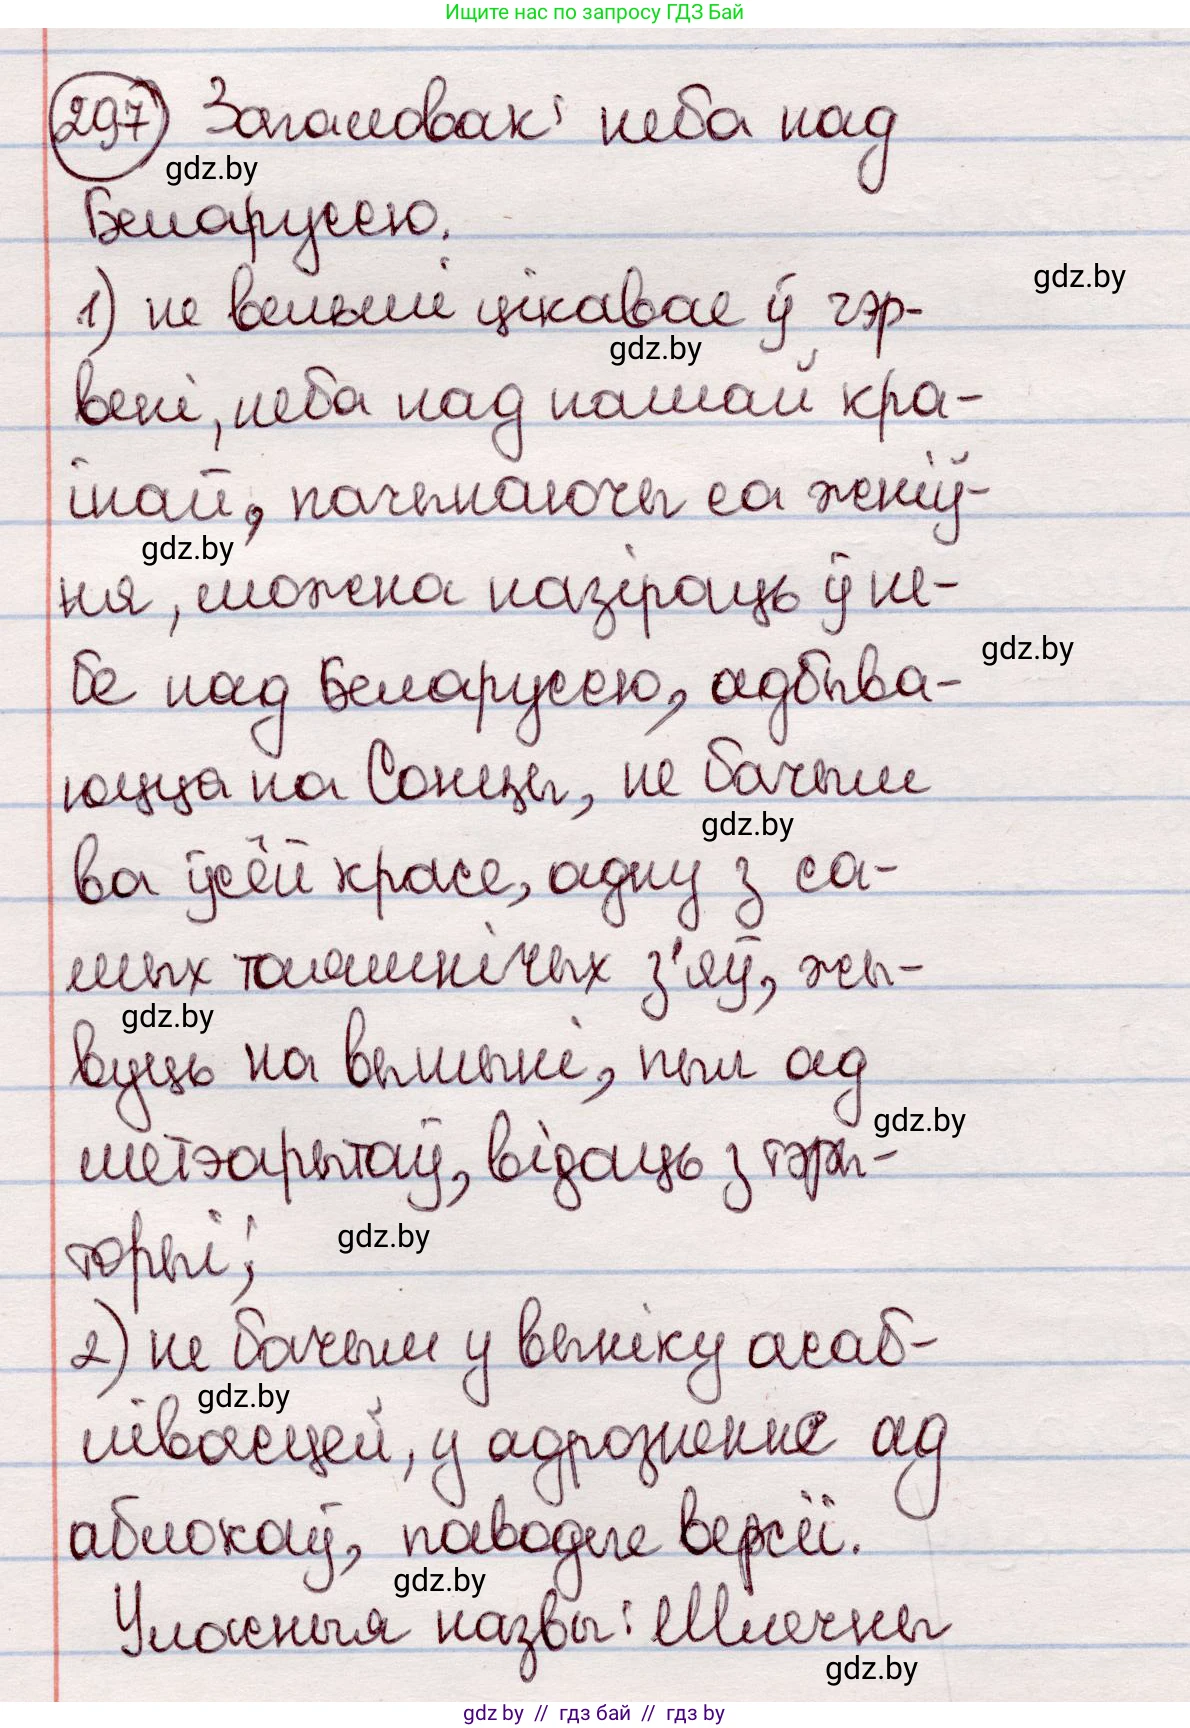 Ищите нас по запросу ГДЗ Бай
297 Загаловак: неба над
gdz.by
Беларуссю.
1) не вельмі цікавае ў чэр-
gdz.by
gdz.by
вені, неба над нашай кра-
інай, пачынаючы са жніў-
gdz.by
ня, можна назіраць ў не-
бе над Беларуссю, адбыва-
gdz.by
юцца на Сонцы, не бачым
gdz.by
ва ўсёй красе, адну з са-
мых таямнічых з'яў, жы-
gdz.by
вуць на вышыні, пыл ад
gdz.by
метэарытаў, відаць з тэры-
торыі;
gdz.by
2) не бачым у выніку асаб-
gdz.by
лівасцей, у адрозненне ад
аблокаў, паводле версіі.
gdz.by
Уласныя назвы: Млечны
gdz.by
gdz.by // гдз бай // gdz.by